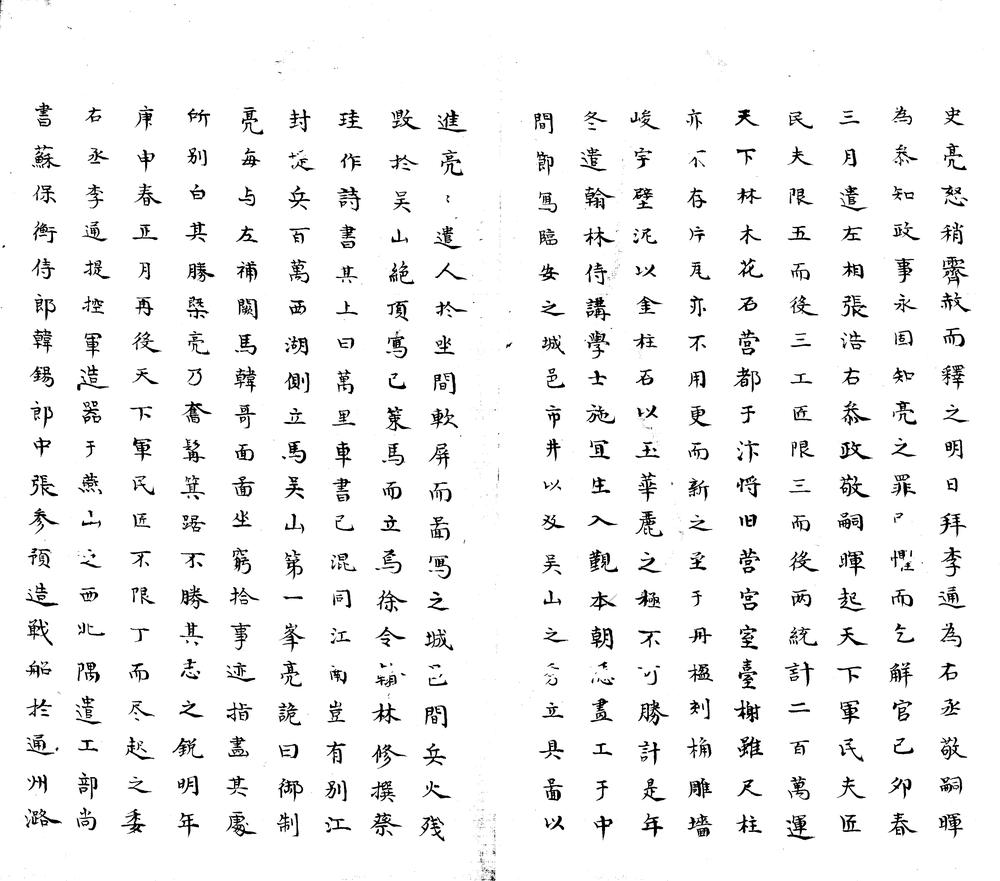 史亮怒稍霽赦而釋之明日拜李通為右丞敬嗣暉
為叅知政事永固知亮之罪已惧而乞解官己卯春
三月遣左相張浩右叅政敬嗣暉起天下軍民夫匠
民夫限五而役三工匠限三而役两統計二百萬運
天下林木花石营都于汴将旧营宫室臺榭雖尺柱
亦不存片瓦亦不用更而新之至于丹楹刻桷雕墻
峻宇壁泥以金柱石以玉華麗之極不可勝計是年
冬遣翰林侍講學士施宜生入覲本朝𢘆畫工于中
間節寫臨安之城邑市井以及吴山之立具啚以
進亮〻遣人於坐間軟屏而啚寫之城邑間兵火残
毀於吴山絕頂寫已策馬而立焉徐令翰林修撰蔡
珪作詩書其上曰萬里車書已混同江南豈有别江
封提兵百萬西湖側立馬吴山第一峯亮詭曰御制
亮每与左補闕馬韓哥面啚坐窮拾事迹指畫其處
所别白其勝槩亮乃奮髯箕踞不勝其志之銳明年
庚申春正月再役天下軍民匠不限丁而尽起之委
右丞李通提控軍造器于燕山之西北隅遣工部尚
書蘇保衡侍郎韓錫郎中張参預造戦船於通州潞